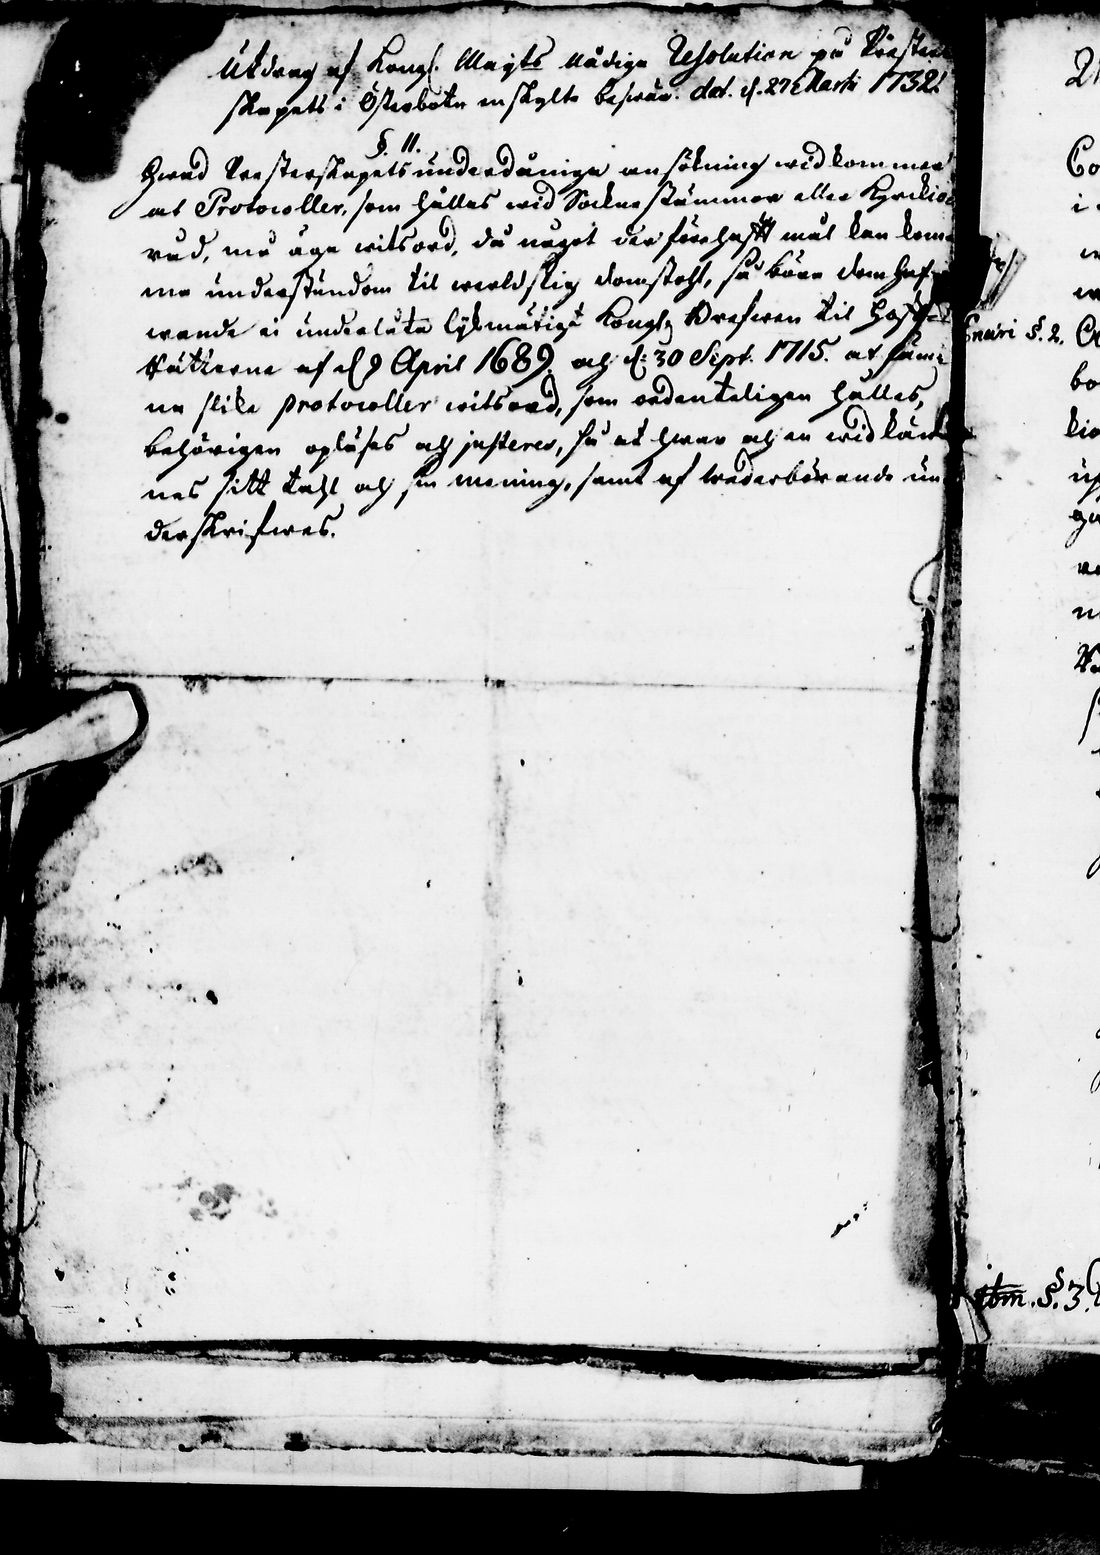 Utdrag af Kongl. Maijts Nådiga Resolution på Prester
skapets i Österbotn enskylte beswär. dat. d. 27 Martii 1732.
§. 11.
Hwad Presterskapets underdåniga ansökning widkommer
at Protocoller, som hålles wid Sockne stämmor eller Kyrkio
råd, må äga witsord, då något der förehaft mål kan kom
ma understundom til werldslig domstohl, så böra domhaf
wande ei underlåta lijkmätigt Kongl. Brefwen til Hof
Rätterne af d. 9 April 1689. och d. 30 Sept. 1715. at läm
na slike protocoller witsord, som ordenteligen hålles,
behörigen opläses och justeras, så at hwar och en widkän
nes sitt tahl och sin mening, samt af wederbörande un
derskrifwes.
§. 2.
ibm. §. 3.